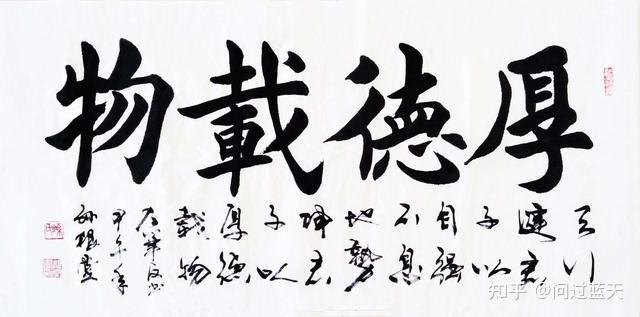 厚德載物
天行
健君
子以
自強
不息
地勢
坤君
子以
厚德
載物
甲午年
知乎 @问过蓝天